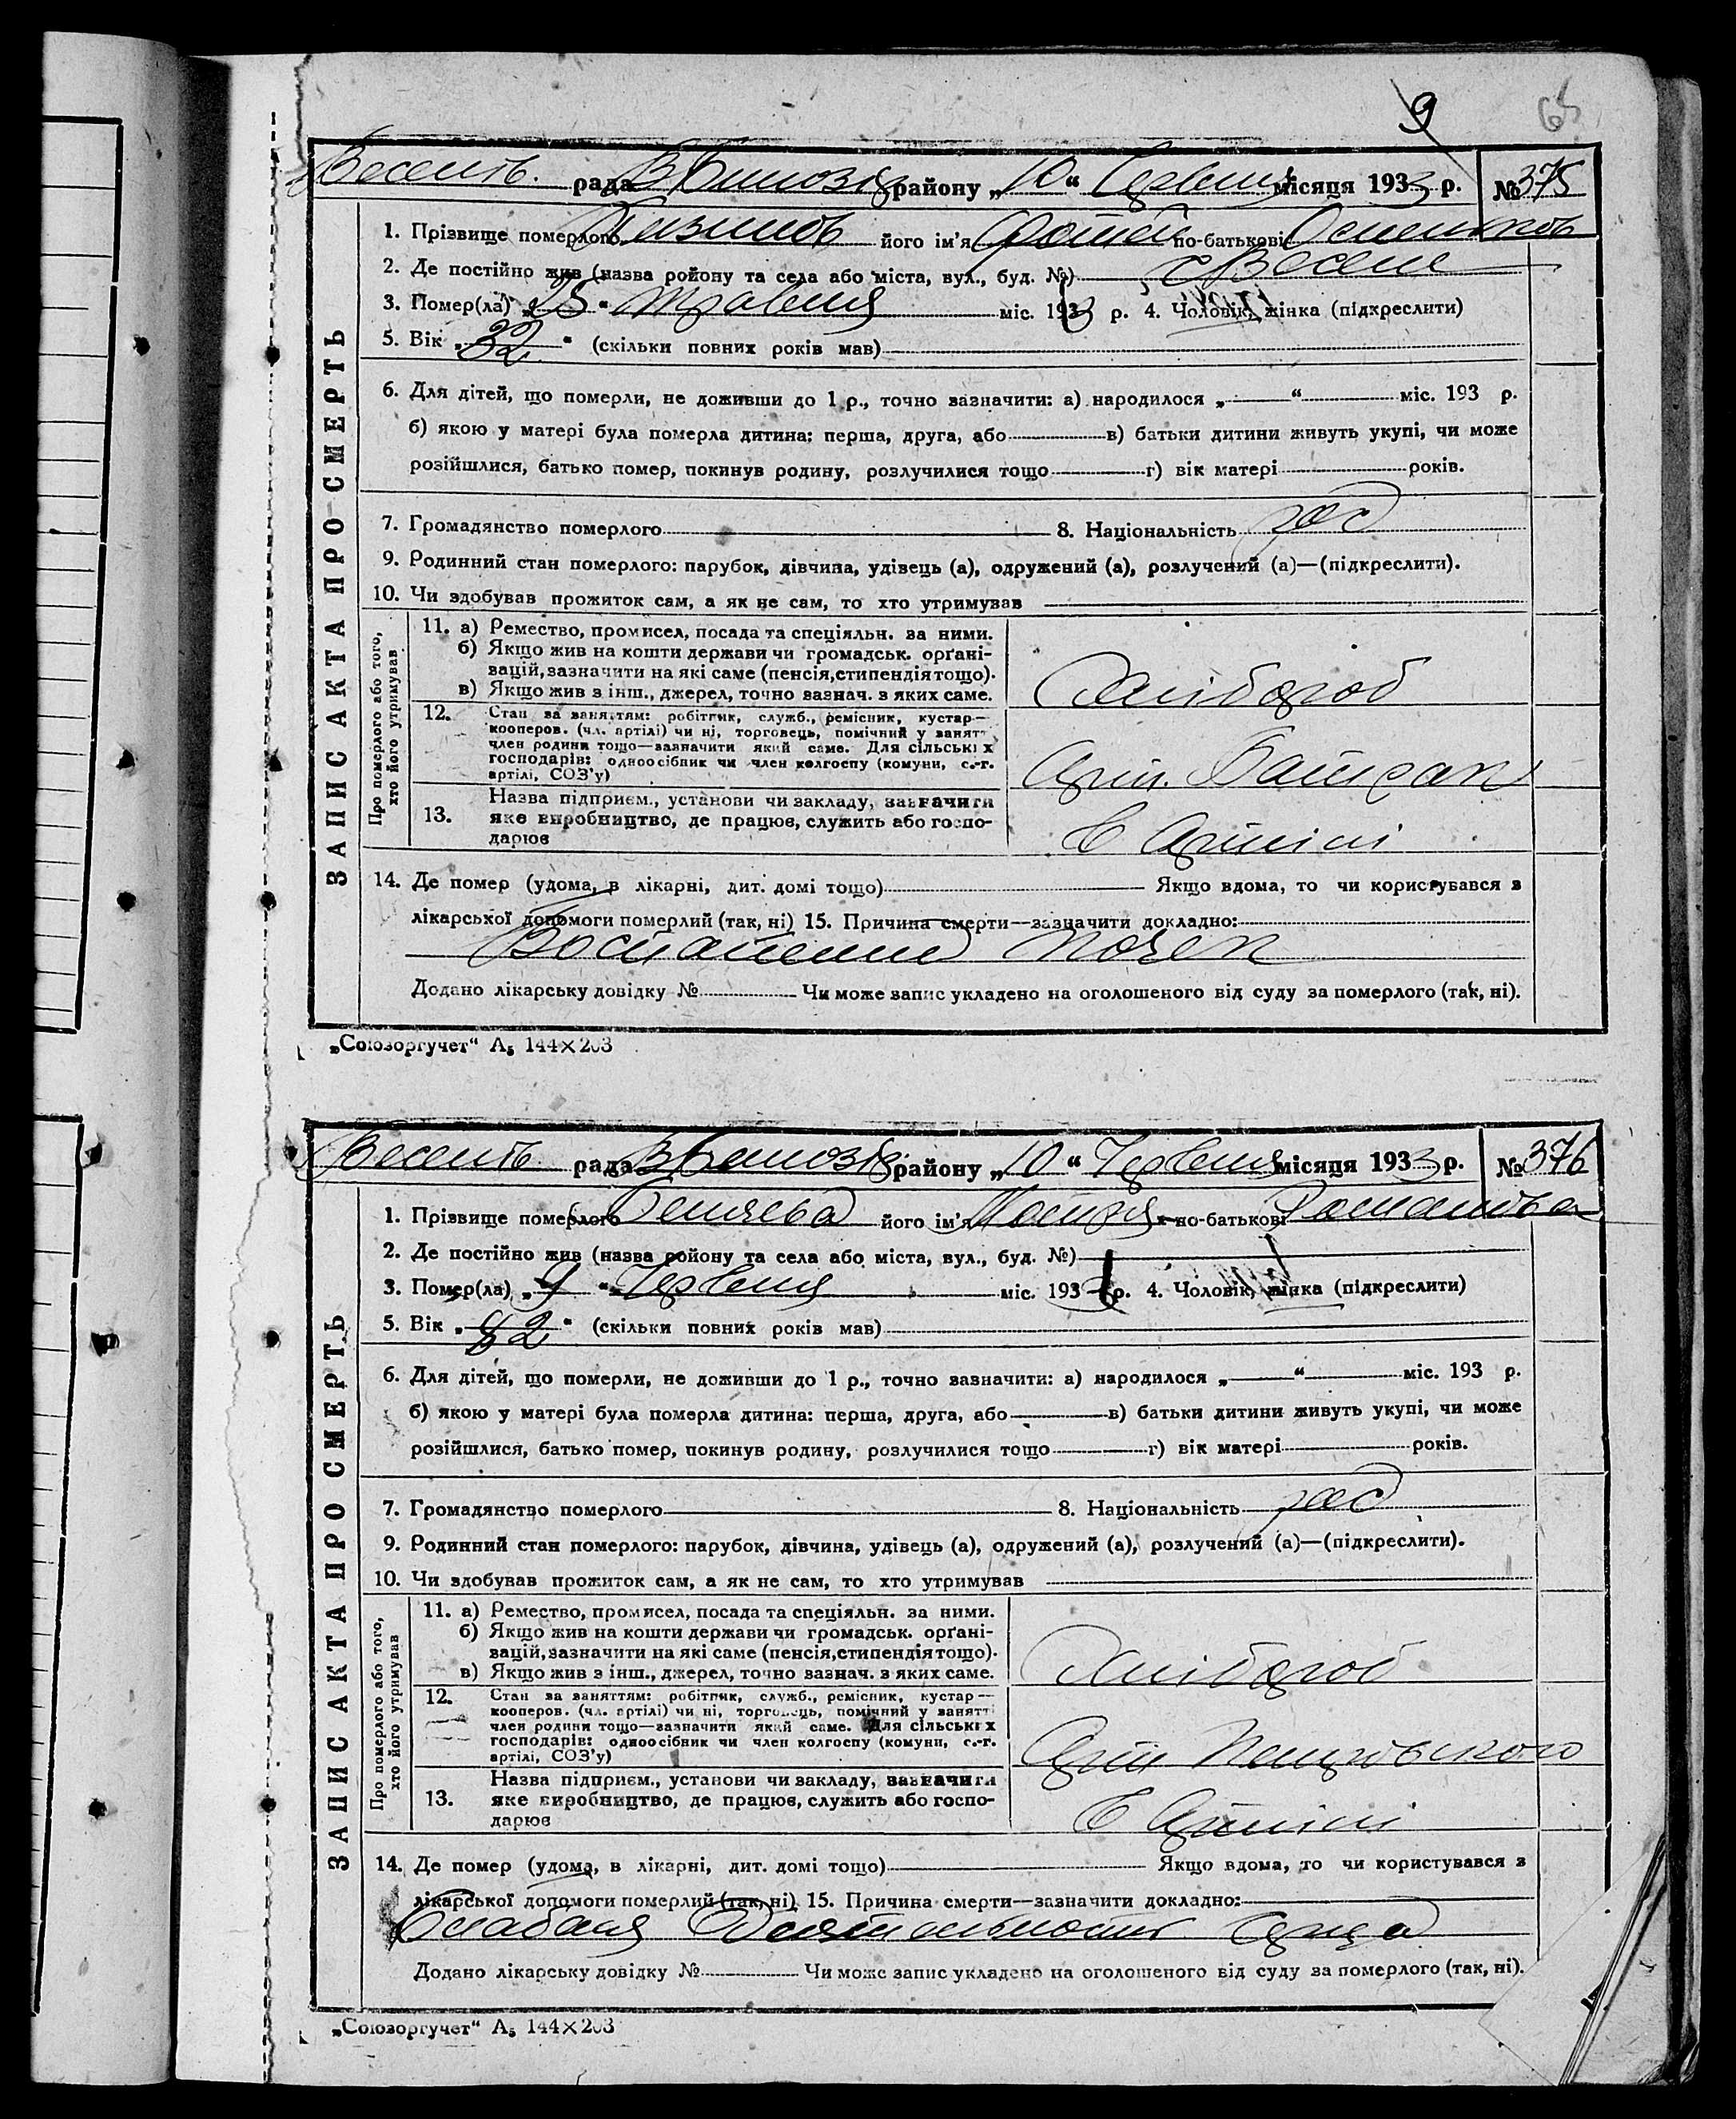 9 65
рада району „10“ Червня місяця 1933 р. № 375
1. Прізвище померлого його ім'я по-батькові
2. Де постійно жив (назва ройону та села або міста, вул., буд. №) с Веселе
3. Помер(ла) „25“ травня міс. 1933 р. 4. Чоловік, жінка (підкреслити)
5. Вік „32“ (скільки повних років мав)
6. Для дітей, що померли, не доживши до 1 р., точно зазначити: а) народилося „ “ міс. 193 р.
б) якою у матері була померла дитина: перша, друга, або в) батьки дитини живуть укупі, чи може
розійшлися, батько помер, покинув родину, розлучилися тощо г) вік матері років.
7. Громадянство померлого 8. Національність рос
9. Родинний стан померлого: парубок, дівчина, удівець (а), одружений (а), розлучений (а)—(підкреслити).
10. Чи здобував прожиток сам, а як не сам, то хто утримував
ЗАПИС АКТА ПРО СМЕРТЬ
Про померлого або того,
хто його утримував
11. а) Ремество, промисел, посада та спеціяльн. за ними.
б) Якщо жив на кошти держави чи громадськ. орґані-
зацій, зазначити на які саме (пенсія, стипендія тощо).
в) Якщо жив з інш., джерел, точно зазнач. з яких саме.
Хлібороб
12. Стан за заняттям: робітник, служб., ремісник, кустар—
кооперов. (чл. артілі) чи ні, торговець, помічний у занятт
член родини тощо—зазначити який саме. Для сільських
господарів: одноосібник чи член колгоспу (комуни, с.-г.
артілі, СОЗ'у)
Арт. Батрак
13. Назва підприєм., установи чи закладу, зазначити
яке виробництво, де працює, служить або госпо-
дарює
В Артілі
14. Де помер (удома, в лікарні, дит. домі тощо) Якщо вдома, то чи користувався з
лікарської допомоги померлий (так, ні) 15. Причина смерти—зазначити докладно:
Воспаление почек
Додано лікарську довідку № Чи може запис укладено на оголошеного від суду за померлого (так, ні).
„Союзоргучет“ А₅ 144×203
рада району „10“ Червня місяця 1933 р. № 376
1. Прізвище померлого Беляева його ім'я по-батькові
2. Де постійно жив (назва ройону та села або міста, вул., буд. №)
3. Помер(ла) „9“ Червня міс. 1933 р. 4. Чоловік, жінка (підкреслити)
5. Вік „82“ (скільки повних років мав)
6. Для дітей, що померли, не доживши до 1 р., точно зазначити: а) народилося „ “ міс. 193 р.
б) якою у матері була померла дитина: перша, друга, або в) батьки дитини живуть укупі, чи може
розійшлися, батько помер, покинув родину, розлучилися тощо г) вік матері років.
7. Громадянство померлого 8. Національність рос
9. Родинний стан померлого: парубок, дівчина, удівець (а), одружений (а), розлучений (а)—(підкреслити).
10. Чи здобував прожиток сам, а як не сам, то хто утримував
ЗАПИС АКТА ПРО СМЕРТЬ
Про померлого або того,
хто його утримував
11. а) Ремество, промисел, посада та спеціяльн. за ними.
б) Якщо жив на кошти держави чи громадськ. орґані-
зацій, зазначити на які саме (пенсія, стипендія тощо).
в) Якщо жив з інш., джерел, точно зазнач. з яких саме.
Хлібороб
12. Стан за заняттям: робітник, служб., ремісник, кустар—
кооперов. (чл. артілі) чи ні, торговець, помічний у занятт
член родини тощо—зазначити який саме. Для сільських
господарів: одноосібник чи член колгоспу (комуни, с.-г.
артілі, СОЗ'у)
Арт Петровського
13. Назва підприєм., установи чи закладу, зазначити
яке виробництво, де працює, служить або госпо-
дарює
В Артілі
14. Де помер (удома, в лікарні, дит. домі тощо) Якщо вдома, то чи користувався з
лікарської допомоги померлий (так, ні) 15. Причина смерти—зазначити докладно:
Слабая Деятельность
Додано лікарську довідку № Чи може запис укладено на оголошеного від суду за померлого (так, ні).
„Союзоргучет“ А₅ 144×203